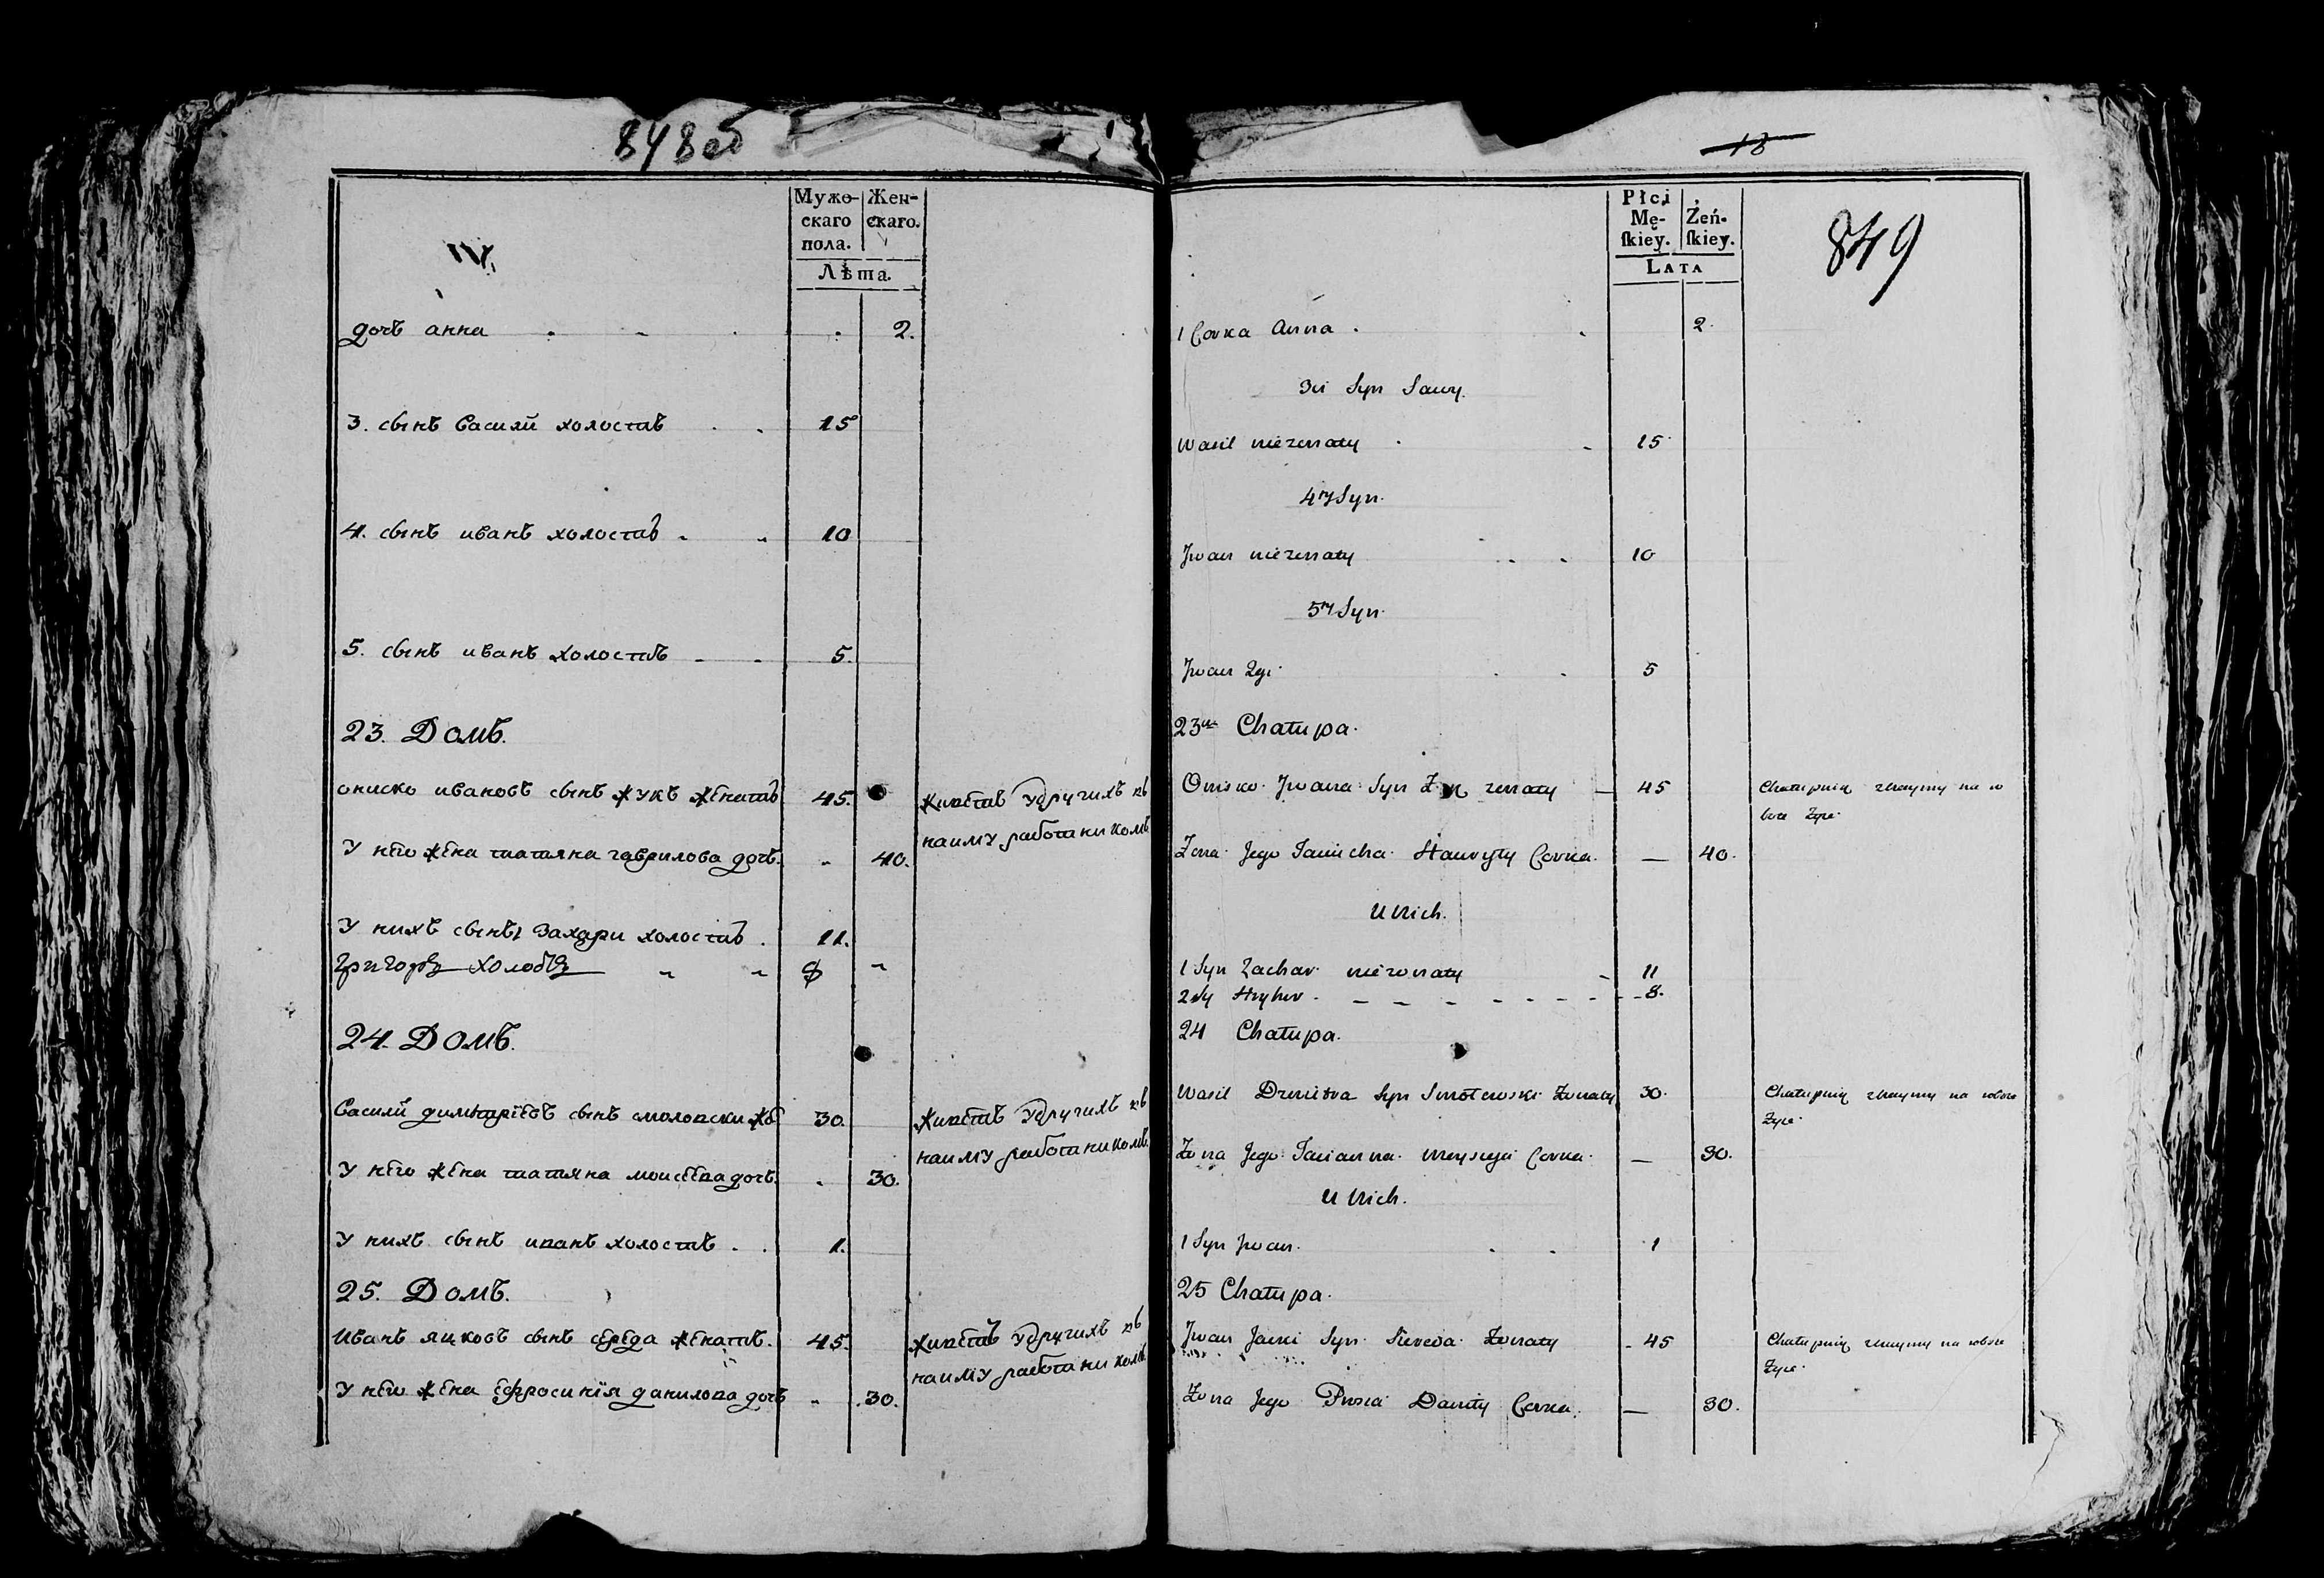 848 об
Мужe- Жен-
скаго скаго.
пола.
Лѣта.
IV.
дочь анна 2.
3. сынъ василий холостъ 15
4. сынъ иванъ холостъ 10
5. сынъ иванъ холостъ 5.
23. Домъ.
ониско ивановъ сынъ жукъ женатъ 45. живетъ удругихъ въ
наиму работникомъ
У него жена татяна гаврилова дочь. 40.
У нихъ сынъ 1 захари холостъ. 11.
григоръ холостъ 8
24. Домъ.
василий димтариевъ сынъ смоловски 30. живетъ удругихъ въ
наиму работникомъ.
У него жена татяна моисеева дочь. 30.
У нихъ сынъ иванъ холостъ. 1.
25. Домъ.
Иванъ яцковъ сынъ середа женатъ. 45. живетъ удругихъ въ
наиму работникомъ
У него жена ефросинїя данилова дочь 30.
18
Płci
Mę- Żeń-
ſkiey. ſkiey.
LATA
849
1 Corka Anna 2.
3ci Syn Sawy.
Wasil niezenaty 15
4ty Syn.
Jwan niezenaty 10
5ty Syn.
Jwan 5
23cia Chałupa.
Onisko Jwana Syn zenaty 45 Chałupnik na
Zona Jego Corka. 40.
U Nich.
1 Syn Zachar niezonaty 11
2gi Hryhor 8.
24 Chałupa.
Wasil Dmitra Syn Smolewski Zonaty 30. Chałupnik na
Zona Jego Tacianna Corka. 30.
U Nich.
1 Syn Jwan. 1
25 Chałupa.
Jwan Jacki Syn Sereda Zonaty 45 Chałupnik na
Zona Jego Daniły Corka. 30.